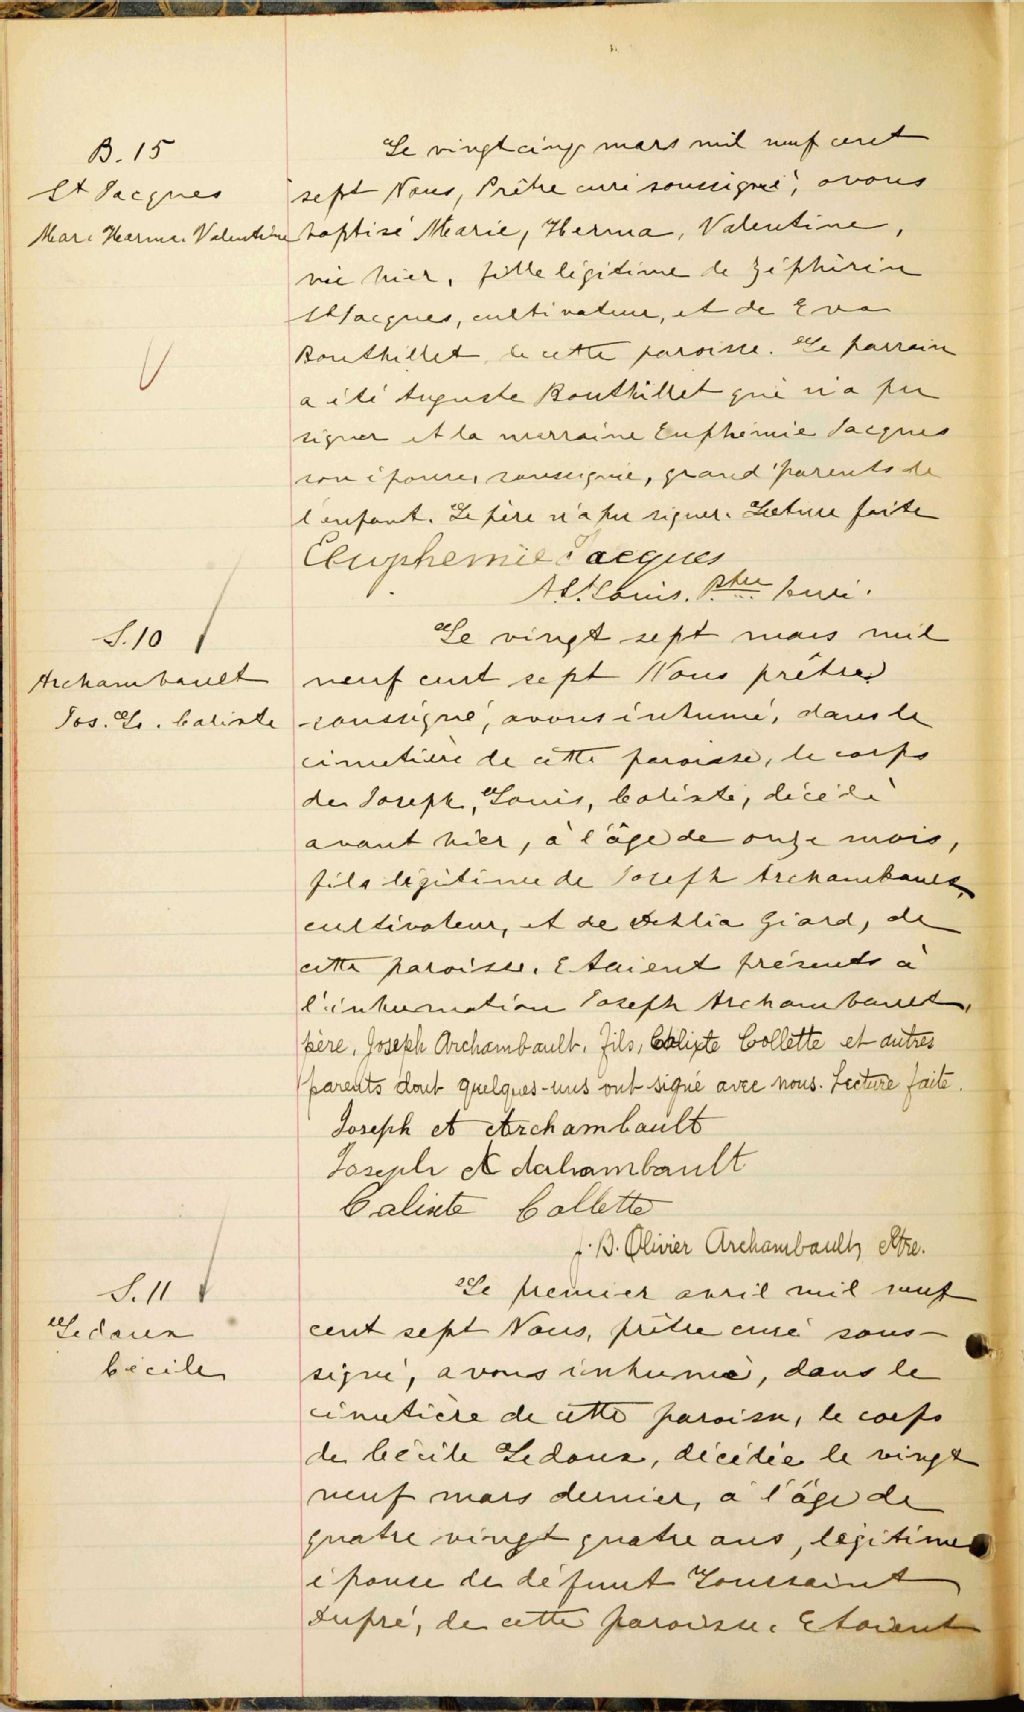 B. 15
St Jacques
Mar. Herma. Valentine
Le vingt cinq mars mil neuf cent
sept Nous, Prêtre curé soussigné, avons
baptisé Marie, Herma, Valentine,
née hier, fille légitime de Zéphirin
St Jacques, cultivateur, et de Eva
Bouthillet de cette paroisse. Le parrain
a été Auguste Bouthillet qui n'a pu
signer et la marraine Euphémie Jacques
son épouse, soussignée, grand'parents de
l'enfant. Le père n'a pu signer. Lecture faite
Euphemie Jacques
A. St. Louis. Ptre Curé.
S. 10
Archambault
Jos. Ls. Calixte
Le vingt sept mars mil
neuf cent sept Nous prêtre
soussigné, avons inhumé, dans le
cimetière de cette paroisse, le corps
de Joseph, Louis, Calixte, décédé
avant hier, à l'âge de onze mois,
fils légitime de Joseph Archambault,
cultivateur, et de Dehlia Giard, de
cette paroisse. Etaient présents à
l'inhumation Joseph Archambault,
père, Joseph Archambault, fils, Calixte Collette et autres
parents dont quelques-uns ont signé avec nous. Lecture faite.
Joseph A Archambault
Joseph Archambault
Calixte Collette
J. B. Olivier Archambault, Ptre.
S. 11
Ledoux
Cécile
Le premier avril mil neuf
cent sept Nous, prêtre curé sous-
signé, avons inhumé, dans le
cimetière de cette paroisse, le corps
de Cécile Ledoux, décédée le vingt
neuf mars dernier, à l'âge de
quatre vingt quatre ans, légitime
épouse de défunt Toussaint
Dupré, de cette paroisse. Etaient